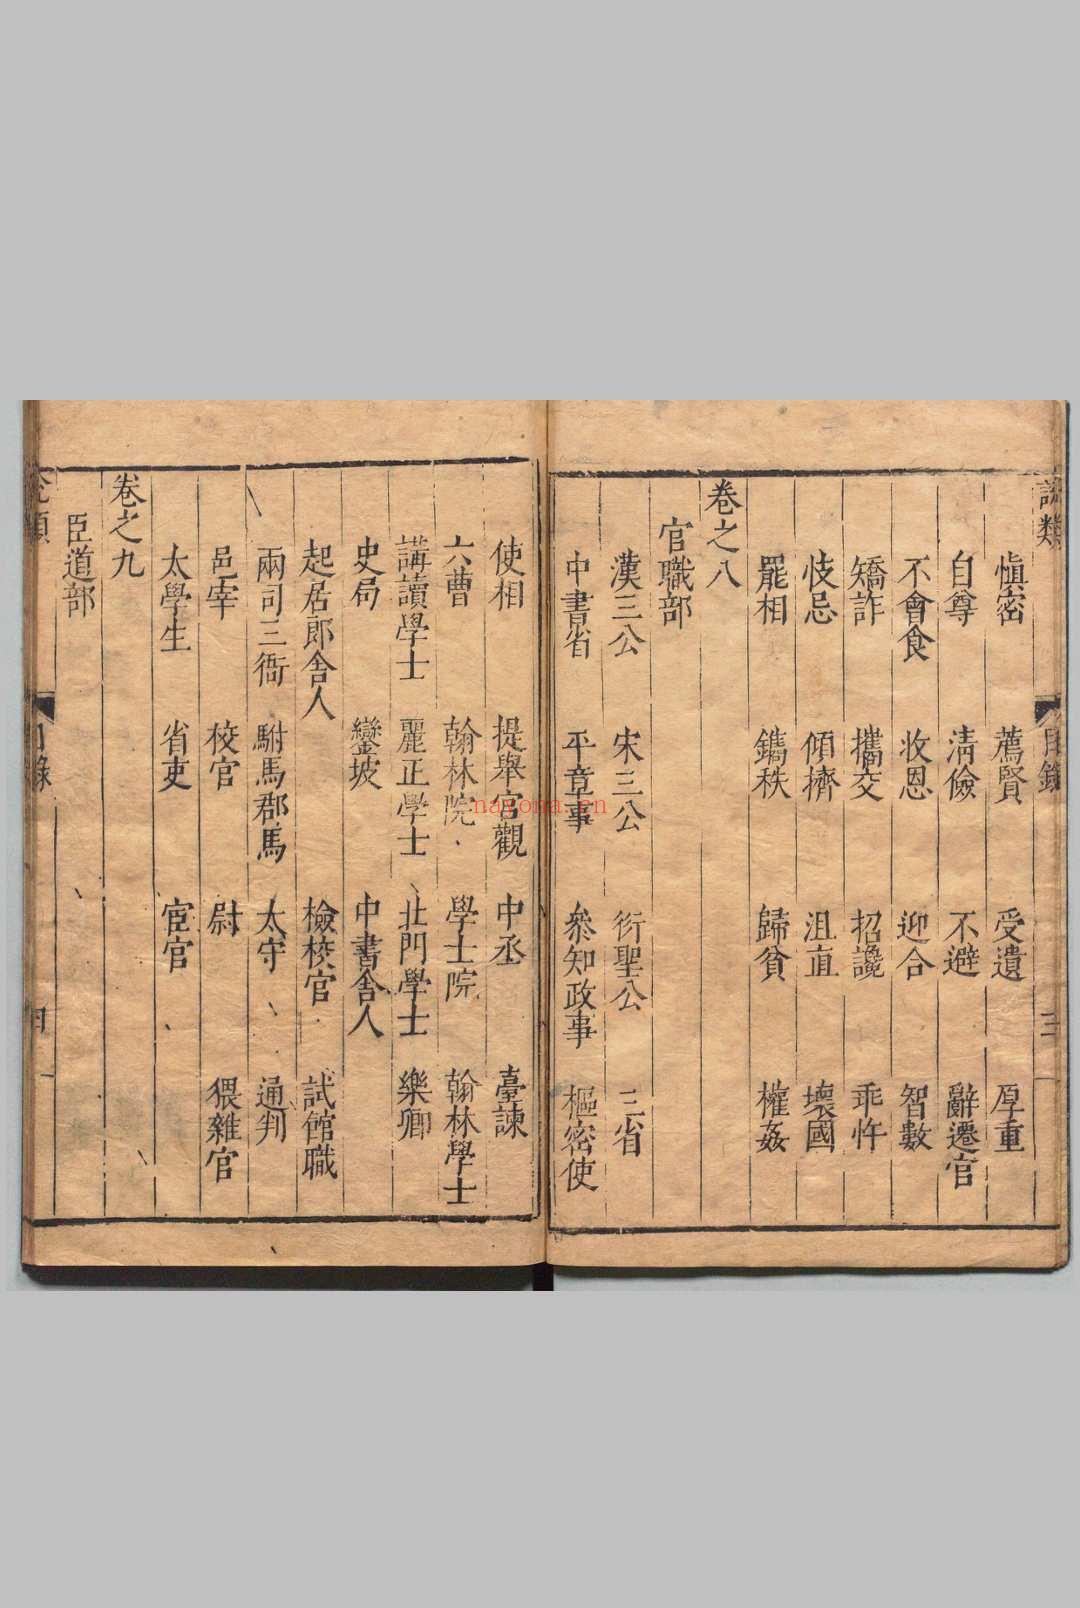 說類
目錄
三
愼密 薦賢 受遺 厚重
自尊 淸儉 不避 辭遷官
不會食 收恩 迎合 智數
矯詐 攜交 招讒 乖忤
忮忌 傾擠 沮直 壞國
罷相 鐫秩 歸貧 權姦
卷之八
官職部
漢三公 宋三公 衍聖公 三省
中書省 平章事 叅知政事 樞密使
使相 提舉宮觀 中丞 臺諫
六曹 翰林院 學士院 翰林學士
講讀學士 麗正學士 北門學士 樂卿
史局 鑾坡 中書舍人
起居郎舍人 檢校官 試館職
兩司三衙 駙馬郡馬 太守 通判
邑宰 校官 尉 猥雜官
太學生 省吏 宦官
卷之九
臣道部
目錄
四
nayona.cn